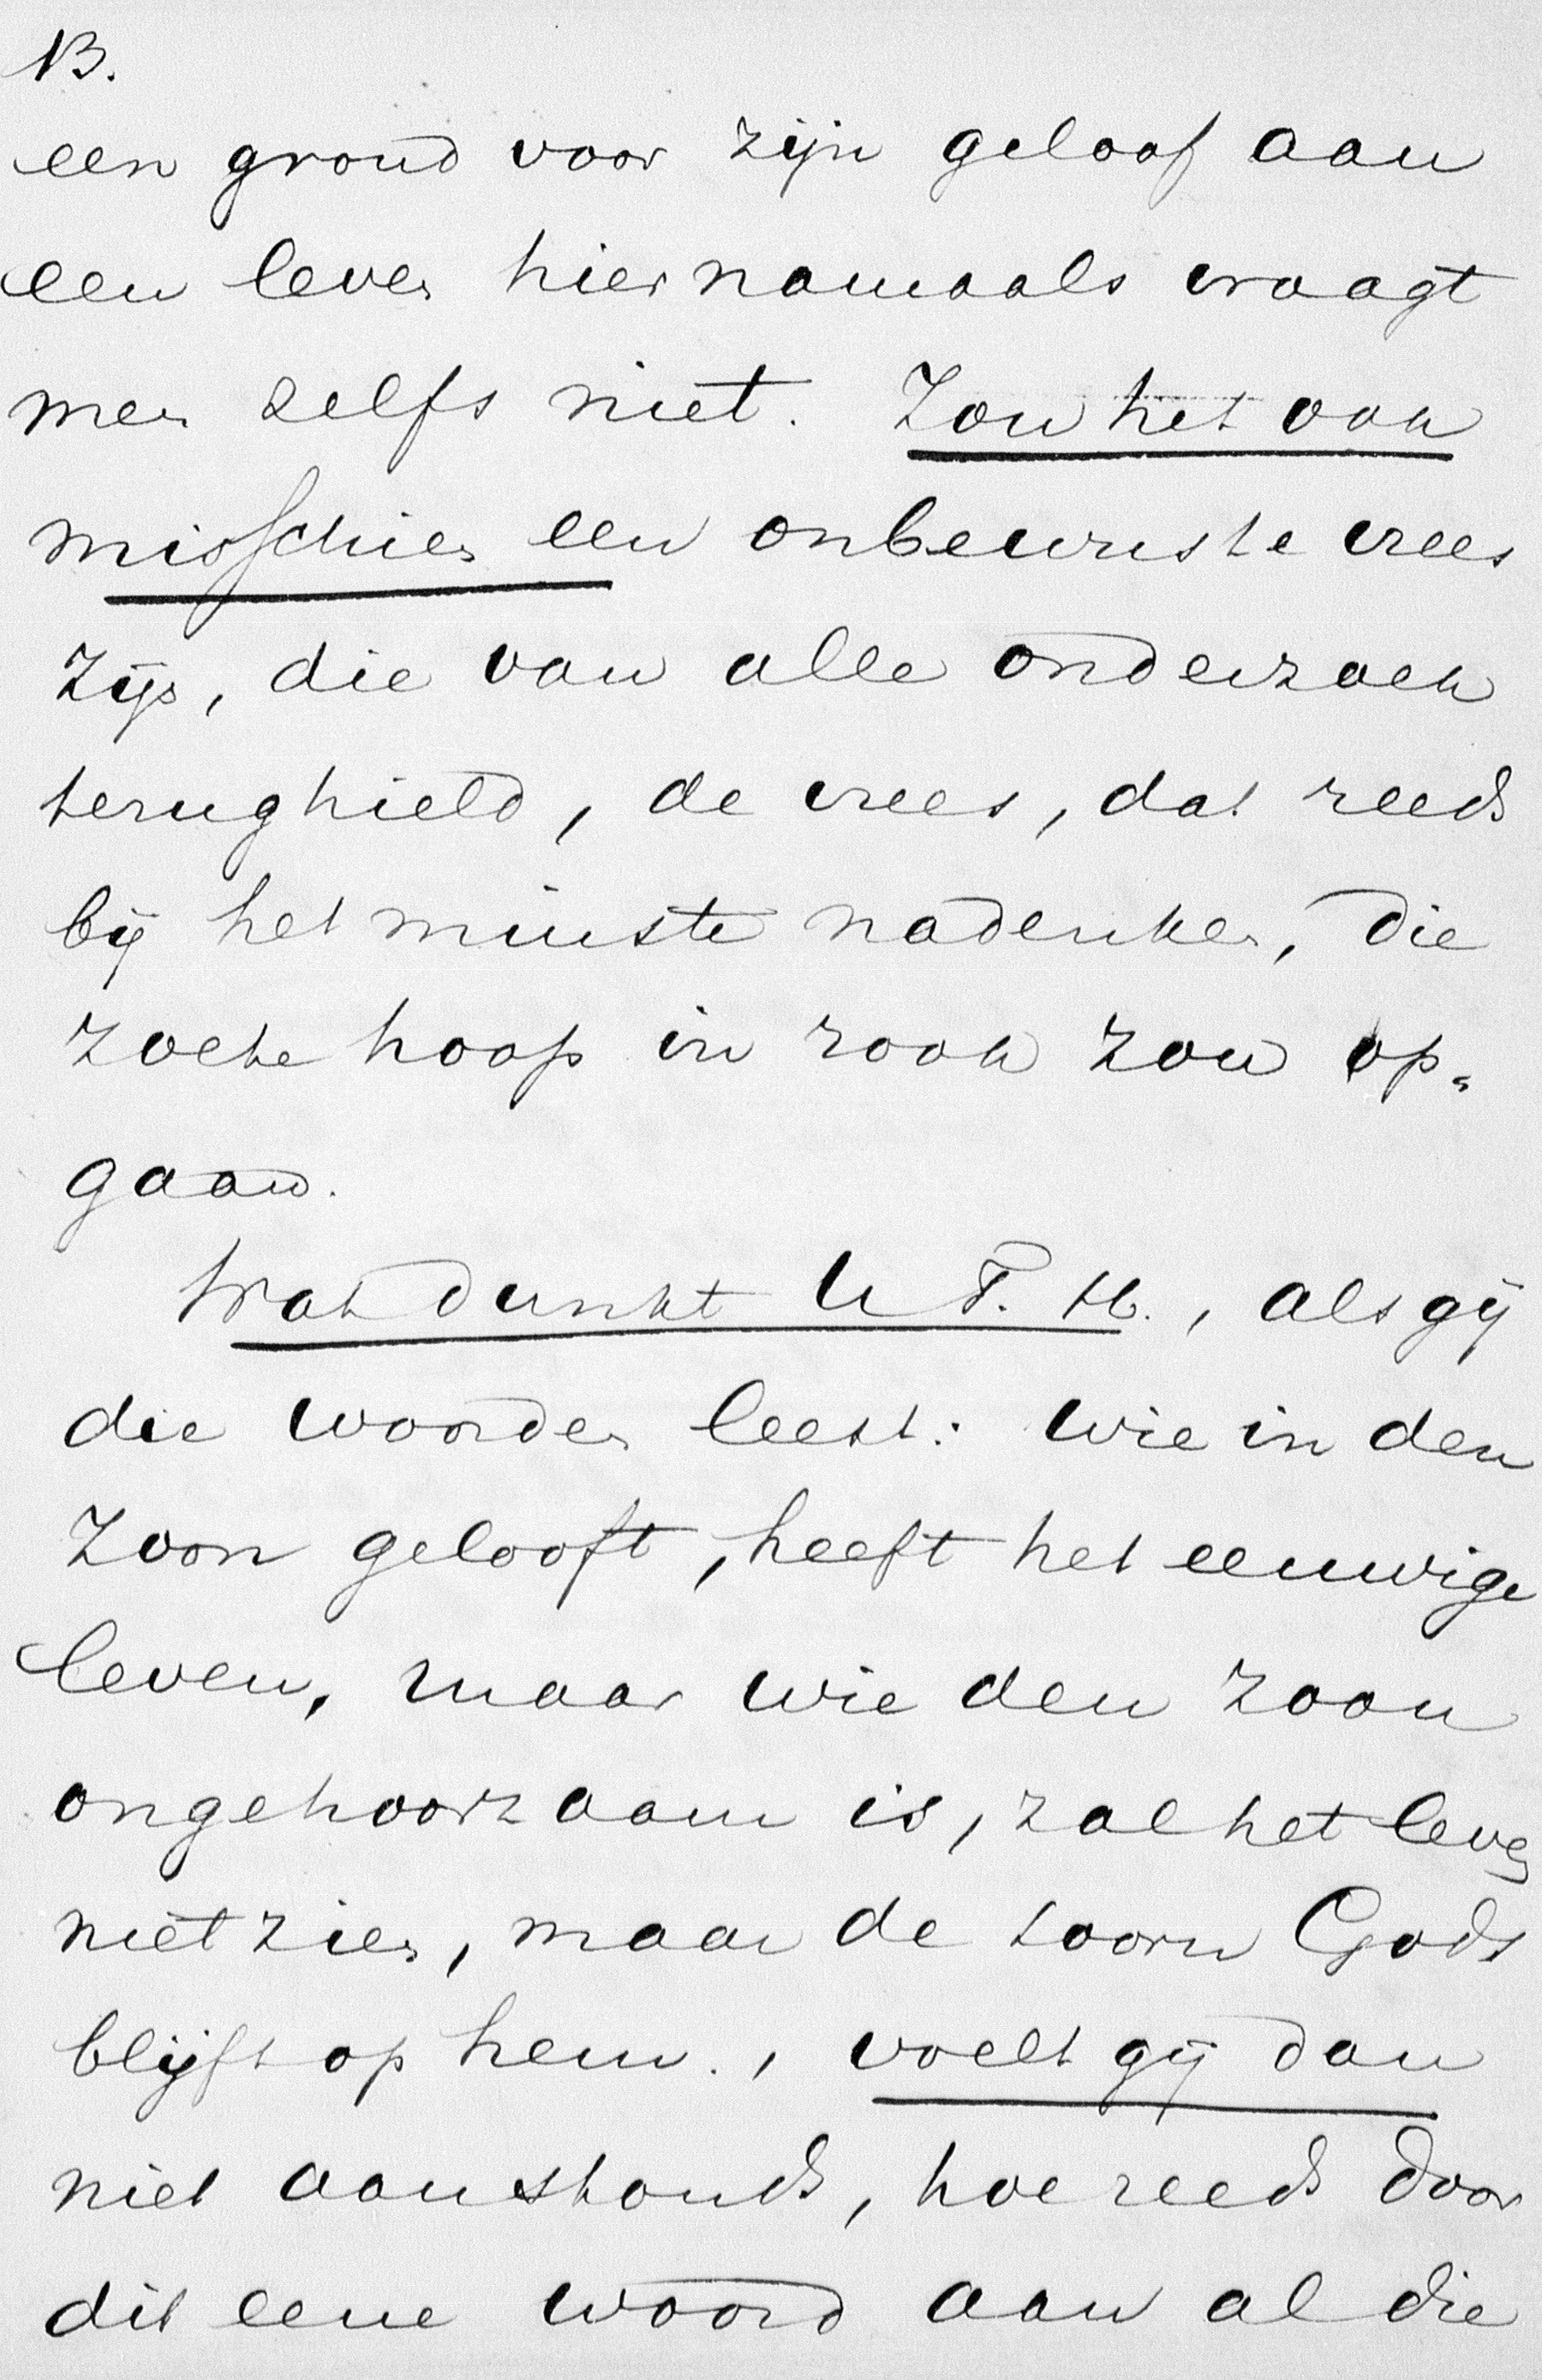 13.
een grond voor zijn geloof aan
een leven hiernamaals vraagt
men zelfs niet. Zou het ook
misschien een onbewuste vrees
zijn, die van alle onderzoek
terughield, de vrees, dat reeds
bij het minste nadenken, die
zoete hoop in rook zou op-
gaan.
Wat dunkt U T. H., als gij
die woorden leest: wie in den
Zoon gelooft, heeft het eeuwige
leven, maar wie den zoon
ongehoorzaam is, zal het leven
niet zien, maar de toorn Gods
blijft op hem., voelt gij dan
niet aanstonds, hoe reeds door
dit eene woord aan al die